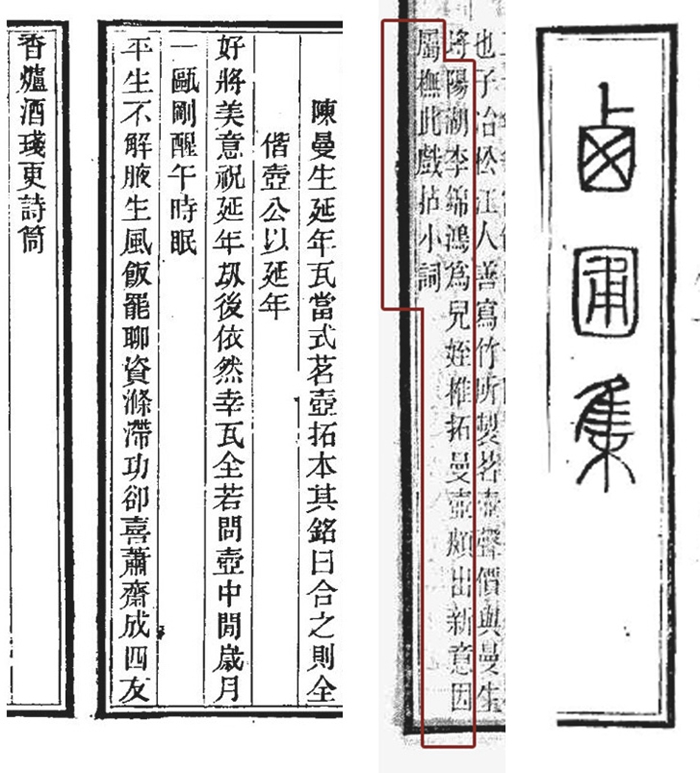 西圃集
也子冶松江人善寫竹所製茗壺聲價與曼生
埒陽湖李錦鴻爲兒姪椎拓曼壺頗出新意因
屬橅此戲拈小詞
陳曼生延年瓦當式茗壺拓本其銘曰合之則全
偕壺公以延年
好將美意祝延年刼後依然幸瓦全若問壺中閒歲月
一甌剛醒午時眠
平生不解腋生風飯罷聊資滌滯功卻喜蕭齋成四友
香爐酒琖更詩筒